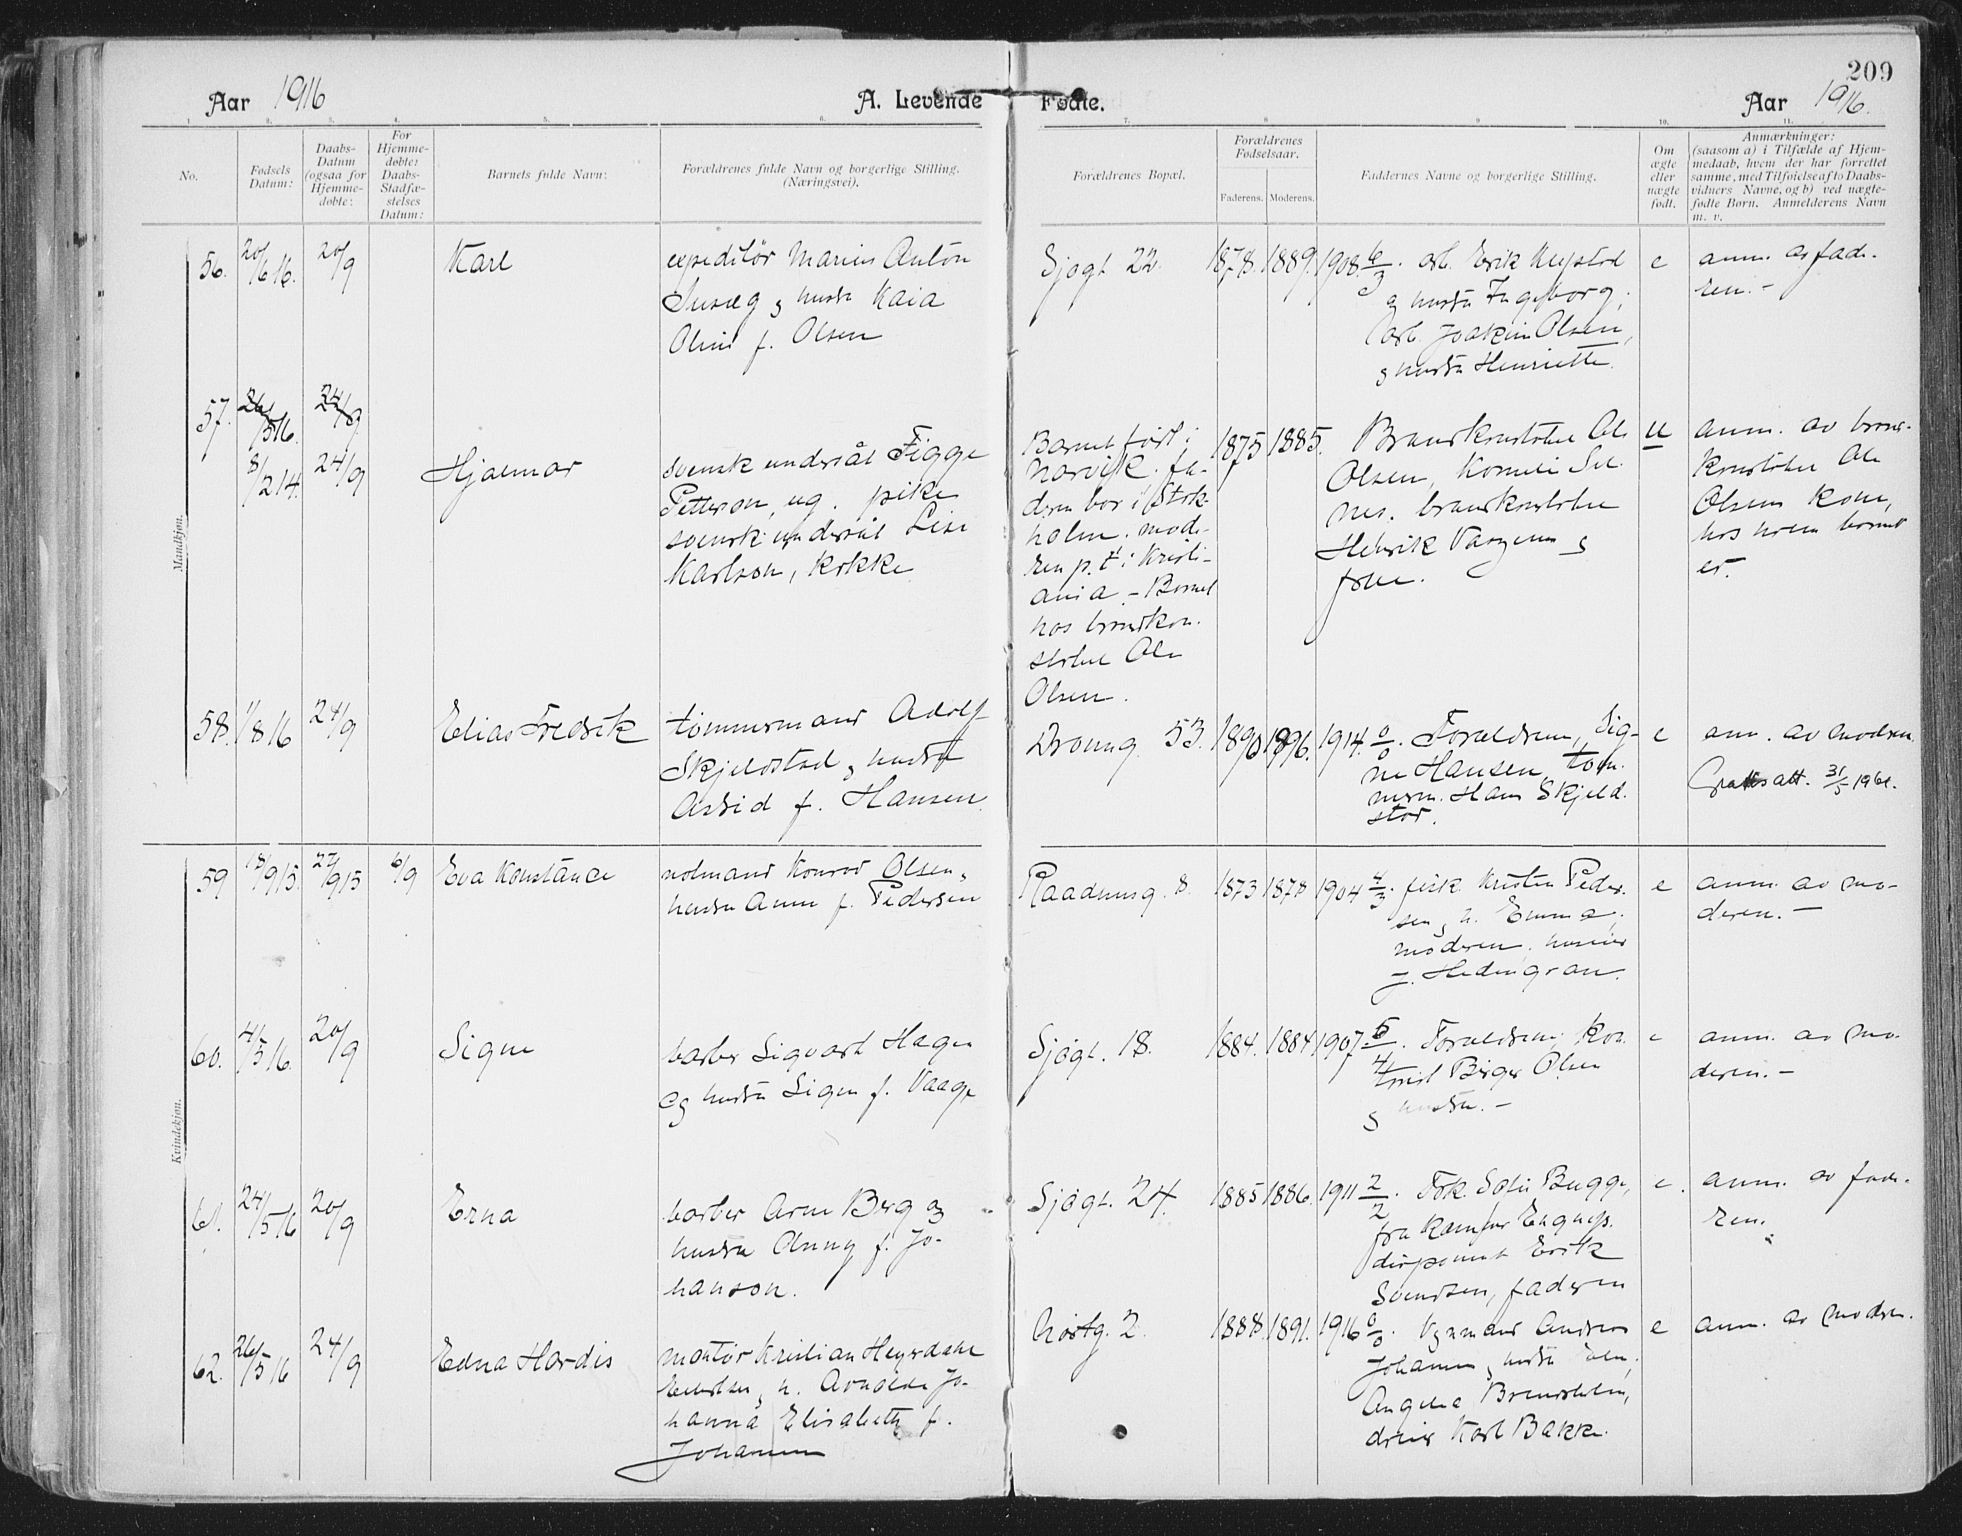 209
Aar 1916
A. Levende Fødte.
Aar 1916.
1. 2. 3. 4. 5. 6. 7. 8 9 10. 11.
No.
Fødsels
Datum:
Daabs-
Datum
(ogsaa for
Hjemme-
døbte:
For
Hjemme-
døbte:
Daabs-
Stadfæ-
stelses
Datum:
Barnets fulde Navn:
Forældrenes fulde Navn og borgerlige Stilling.
(Næringsvei).
Forældrenes Bopæl.
Forældrenes
Fødselsaar.
Faderens. Moderens.
Faddernes Navne og borgerlige Stilling.
Om
ægte
eller
uægte
født.
Anmærkninger:
(saasom a) i Tilfælde af Hjem-
medaab, hvem der har forrettet
samme, med Tilføielse af to Daabs-
vidners Navne, og b) ved uægte-
fødte Børn. Anmelderens Navn
m. v.
Mandkjøn.
56. 20/6 16. 20/9 Karl
expeditør Marius Anton
og hustru Kaia
f. Olsen
Sjøgt 22. 1878. 1889. 1908 6/3. arb. Erik
og hustru Ingeborg,
arb. Joakim Olsen,
og hustru Henriette.
e
anm. av fade-
ren. -
57. 26/5 16. 24/9
8/2 14. 24/9 Hjalmar
svensk undersåt Figge
Petterson, ug. pike
svensk undersåt Lise
Karlson, kokke
Barnet født i
Narvik. fa-
deren bor i Stok-
holm. mode-
ren p. t. i Kristi-
ania. - Barnet
hos brandkon-
stabel Ole
Olsen.
1875 1885.
Brandkonstabel Ole
Olsen, Kornelie
brandkonstabel
Henrik og
frue.
u
anm. av brand-
konstabel Ole
Olsens kone,
hos hvem barnet
er.
58. 1/8 16 24/9 Elias Fredrik
tømmermand Adolf
Skjelstad og hustru
Astrid f. Hansen
Dronng. 53. 1890 1896. 1914. 0/0. Forældrene, Sig-
ne Hansen, tøm-
merm. Hans Skjeld-
stad.
e
anm. av modren.
Gratisatt. 31/5-1961.
Kvindekjøn.
59 18/9 15. 27/9 15 6/9 Eva Konstance
notmand Konrad Olsen,
hustru Anna f. Pedersen
Raadhusg. 8. 1873 1878 1904 4/3. fisk. Kristen Peder-
sen, h. Emma,
moderen.
e
anm. av mo-
deren. -
60. 4/5 16. 20/9 Signe
barber Sigvart Hagen
og hustru Signe f. Vaage
Sjøgt. 18. 1884. 1884 1907 5/4. Forældrene, Kon-
Birger Olsen
og hustru. -
e
anm. av mo-
deren. -
61. 24/5 16 20/9 Erna
barber Arne Berg og
hustru Anny f. Jo-
hanson.
Sjøgt. 24. 1885 1886. 1911 2/2. Frk. Sofie Bugge,
fru
disponent Erik
Svendsen, faderen
e.
anm. av fade-
ren.
62. 26/5 16 24/9 Edna Hordis
montør Kristian Heyerdahl
h. Arnolde Jo-
hanna Elisabeth f.
Johansen
Nostg. 2. 1888. 1891. 1916 0/0. Andreas
Johansen og hustru
Angela
Karl Bakke.
e
anm. av modren.